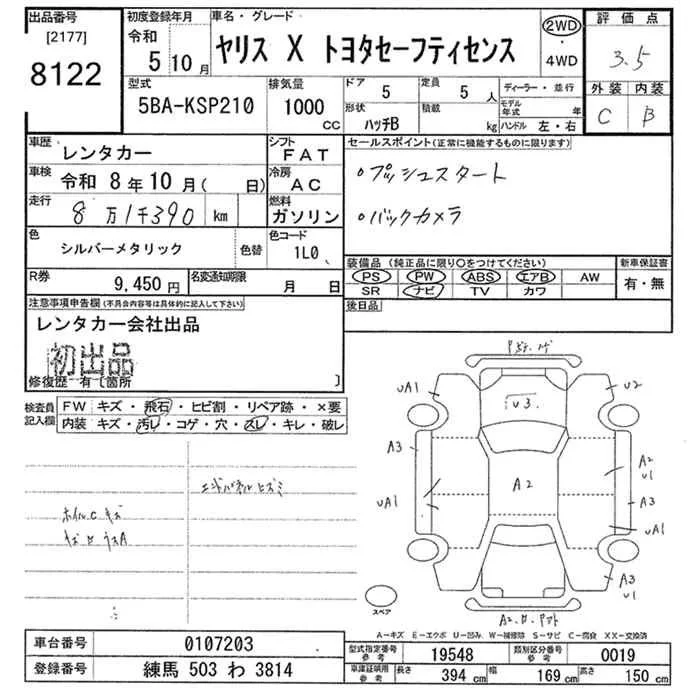 出品番号
[2177]
8122
初度登録年月
令和
5 10 月
車名・グレード
ヤリス X トヨタセーフティセンス
2WD
・
4WD
評価点
3.5
外装 内装
C B
型式
5BA-KSP210
排気量
1000
CC
ドア 5
形状 ハッチB
定員 5 人
積載 kg
ディーラー・並行
モデル年式 年
ハンドル 左・右
車歴 レンタカー
シフト FAT
車検 令和 8 年 10 月( 日)
冷房 AC
走行 8 万1千390 km
燃料 ガソリン
色 シルバーメタリック
色替
色コード 1L0
R券 9,450 円
名変通知期限 月 日
セールスポイント(正常に機能するものに限ります)
・プッシュスタート
・バックカメラ
装備品 (純正品に限り○をつけてください)
PS PW ABS エアB AW
SR ナビ TV カワ
新車保証書
有・無
後日品
注意事項申告欄(不具合内容等は具体的に記入して下さい)
レンタカー会社出品
初出品
修復歴 有〔箇所 〕
検査員記入欄
FW キズ・飛石・ヒビ割・リペア跡・×要
内装 キズ・汚レ・コゲ・穴・スレ・キレ・破レ
エンドパネルヒズミ
ホイルCキズ
UA1
U2
U3
A3
A2
U1
A2
UA1
A3
UA1
A3
U1
スペア
A-キズ E-エクボ U-凹み W-補修跡 S-サビ C-腐食 XX-交換済
車台番号 0107203
登録番号 練馬 503 わ 3814
型式指定番号 参考 19548
類別区分番号 参考 0019
車庫証明用 参考
長さ 394 cm
幅 169 cm
高さ 150 cm